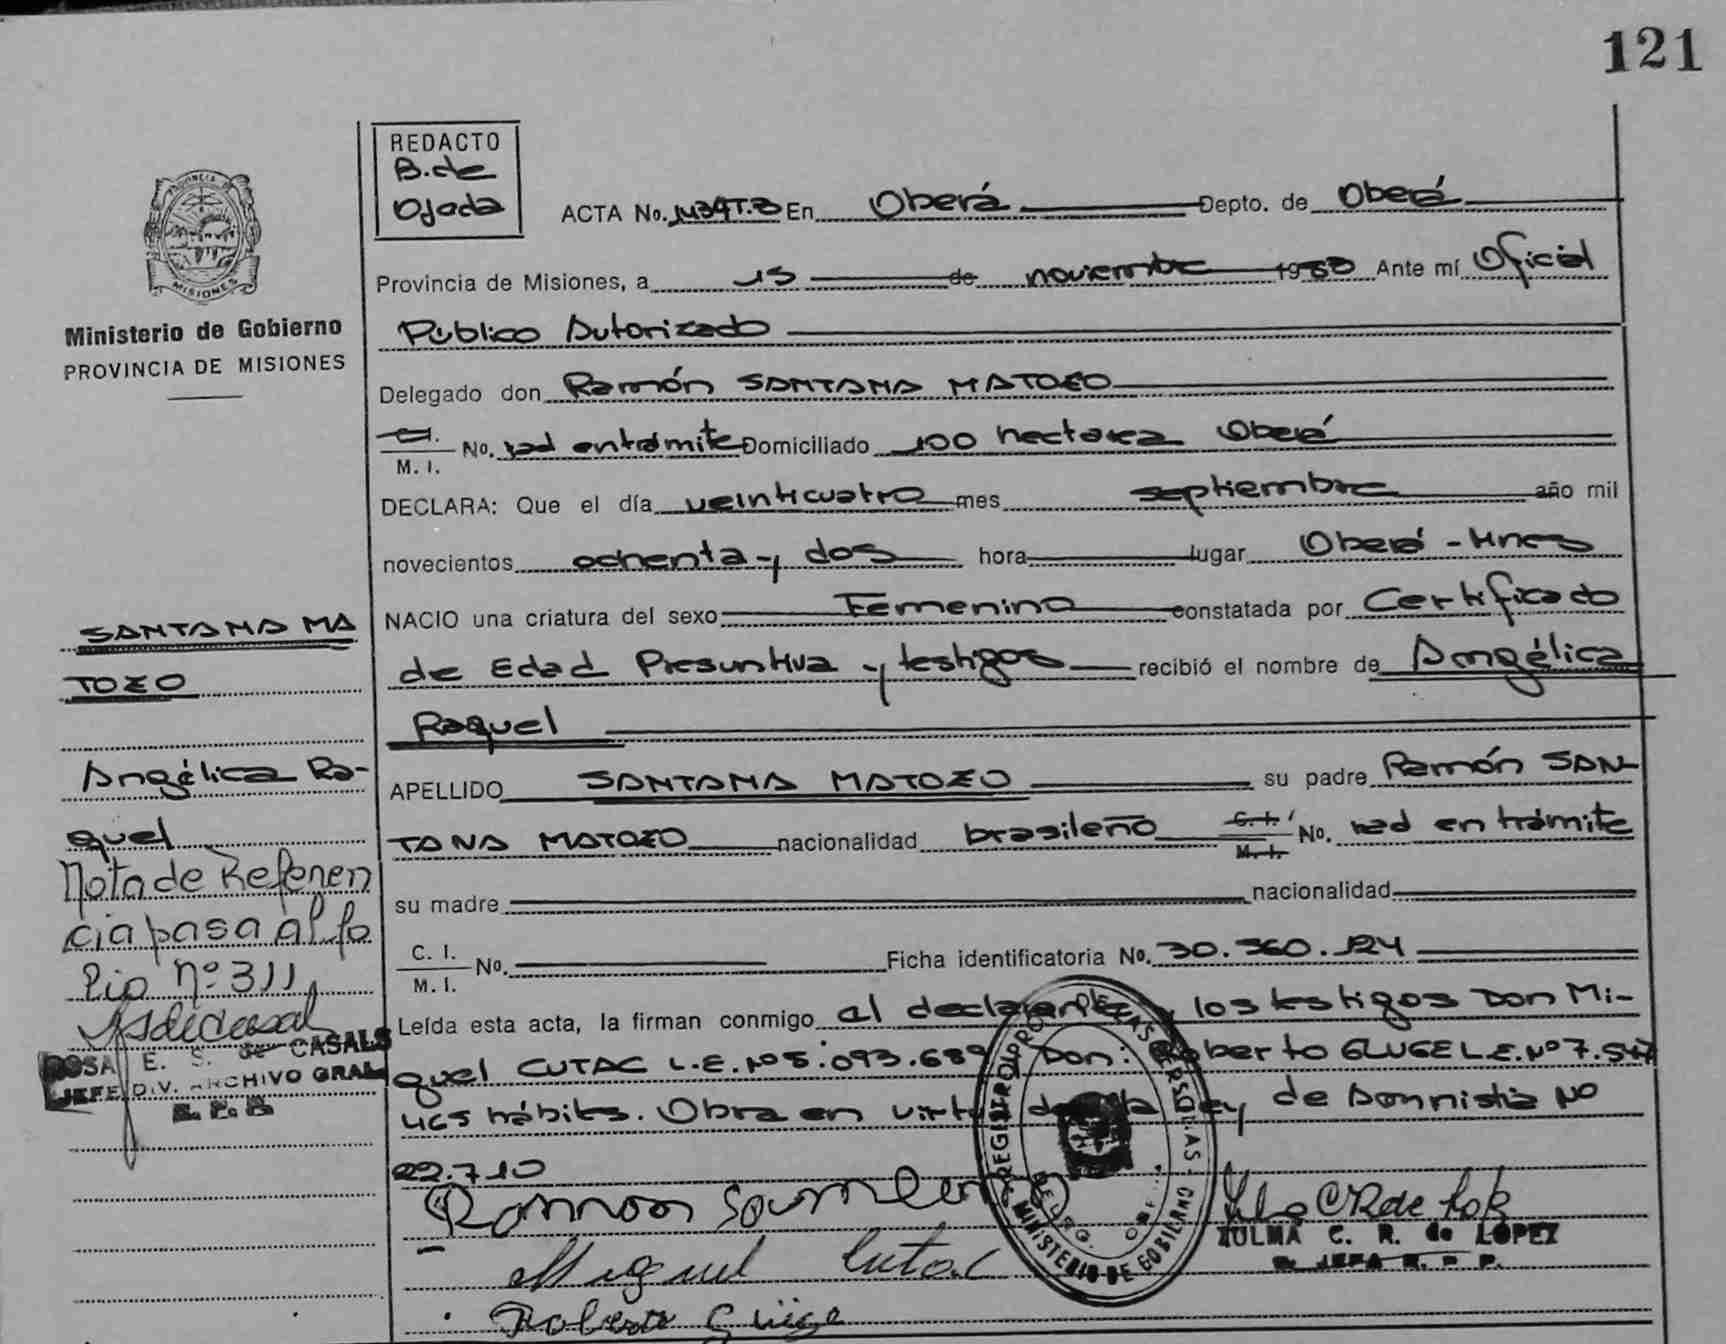 121
REDACTO
B. de
Ojeda
ACTA No. En Oberá Depto. de Oberá
Provincia de Misiones, a 15 de noviembre 19 Ante mí Oficial
Público Autorizado
Delegado don Ramón SANTANA MATOZO
C.I. M. I. No. rad en trámite Domiciliado 100 hectarea Oberá
DECLARA: Que el día veinticuatro mes septiembre año mil
novecientos ochenta y dos hora lugar Oberá - Mnes
NACIO una criatura del sexo Femenino constatada por Certificado
de Edad Presuntiva y testigos recibió el nombre de Angélica
Raquel
APELLIDO SANTANA MATOZO su padre Ramón SAN
TANA MATOZO nacionalidad brasileño C. I. M. I. No. rad en trámite
su madre nacionalidad
C. I. M. I. No. Ficha identificatoria No. 30.360.124
Leída esta acta, la firman conmigo el declarante y los testigos Don Mi-
guel CUTAC L.E. Nº 5.093.689 Don: Roberto GLUGE L.E. Nº 7.547
465 hábiles. Obra en virtud de la Ley de Amnistia Nº
22.710
Ramon
Miguel Cutac
Roberto
ZULMA C. R. de LOPEZ
Ministerio de Gobierno
PROVINCIA DE MISIONES
SANTANA MA
TOZO
Angélica Ra-
quel
Nota de Referen
cia pasa al fo
lio nº 311
ROSA E. S. de CASALS
JEFE DIV. ARCHIVO GRAL